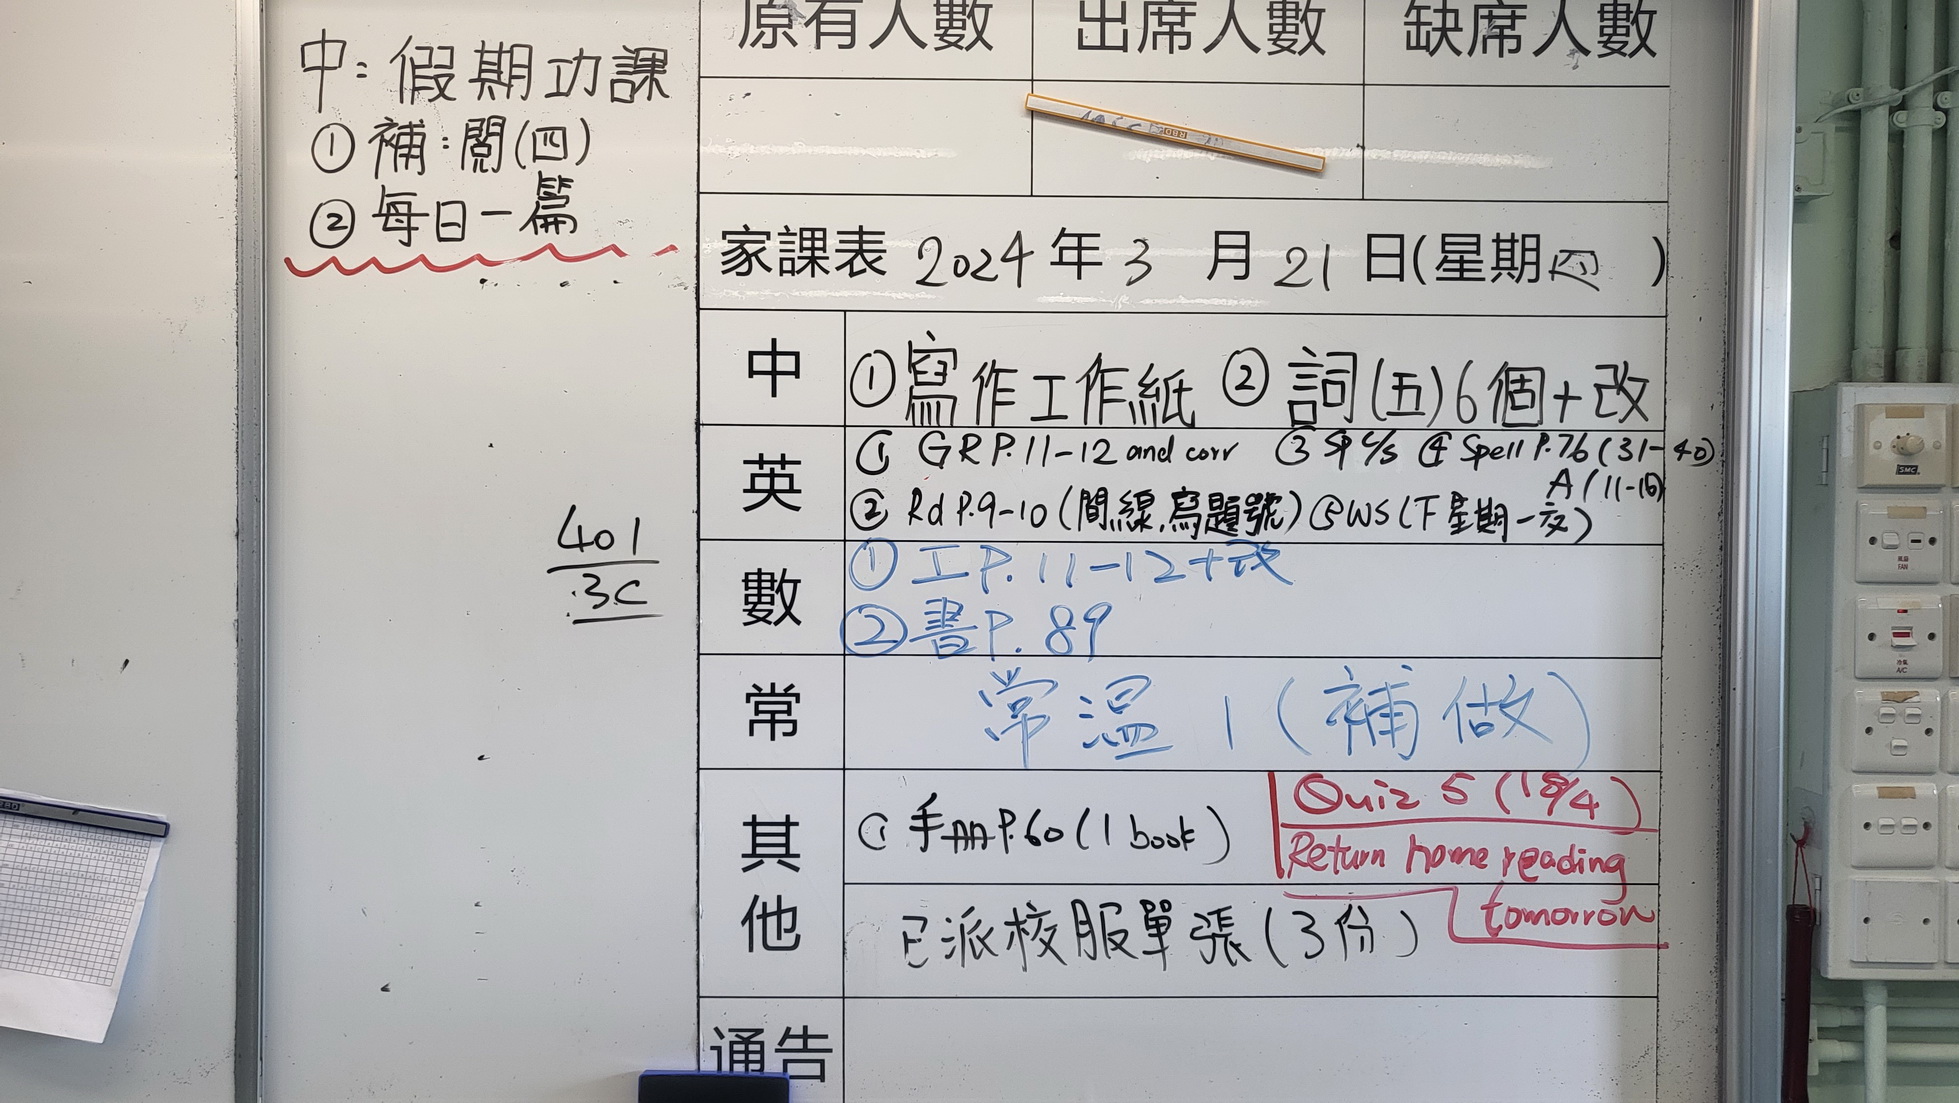 中：假期功課
① 補：閱(四)
② 每日一篇
401
3C
原有人數 出席人數 缺席人數
家課表 2024 年 3 月 21 日(星期四 )
中 ①寫作工作紙 ② 詞(五)6個+改
英 ① GR P.11-12 and corr ③ Sp c/s ④ Spell P.76 (31-40)
A(11-16)
② Rd P.9-10 (間線,寫題號) ⑤ WS (下星期一交)
數 ① 工P.11-12+改
② 書P.89
常 常溫 1 (補做)
其他 ① 手冊P.60 (1 book)
Quiz 5 (18/4)
Return home reading
tomorrow
已派校服單張(3份)
通告
SMC
FAN
A/C